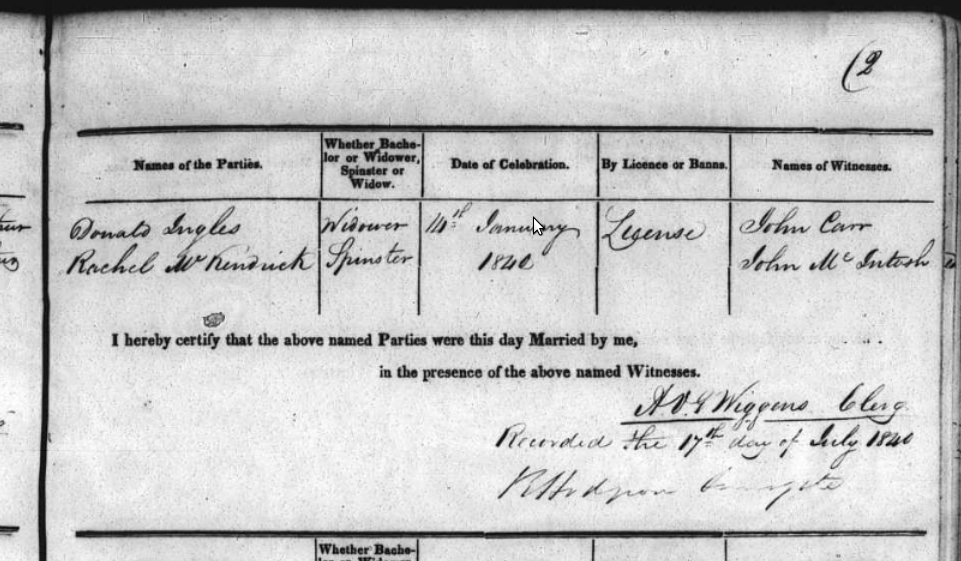 (2
Names of the Parties.
Whether Bache-
lor or Widower,
Spinster or
Widow.
Date of Celebration.
By Licence or Banns.
Names of Witnesses.
Donald Ingles
Widower
14th January
License
John Carr
Rachel McKendrick
Spinster
1840
John Mc Intosh
I hereby certify that the above named Parties were this day Married by me,
in the presence of the above named Witnesses.
A. V. G Wiggens Clerg
Recorded the 17th day of July 1840
R Hodgson
Whether Bache-
lor or Widower,